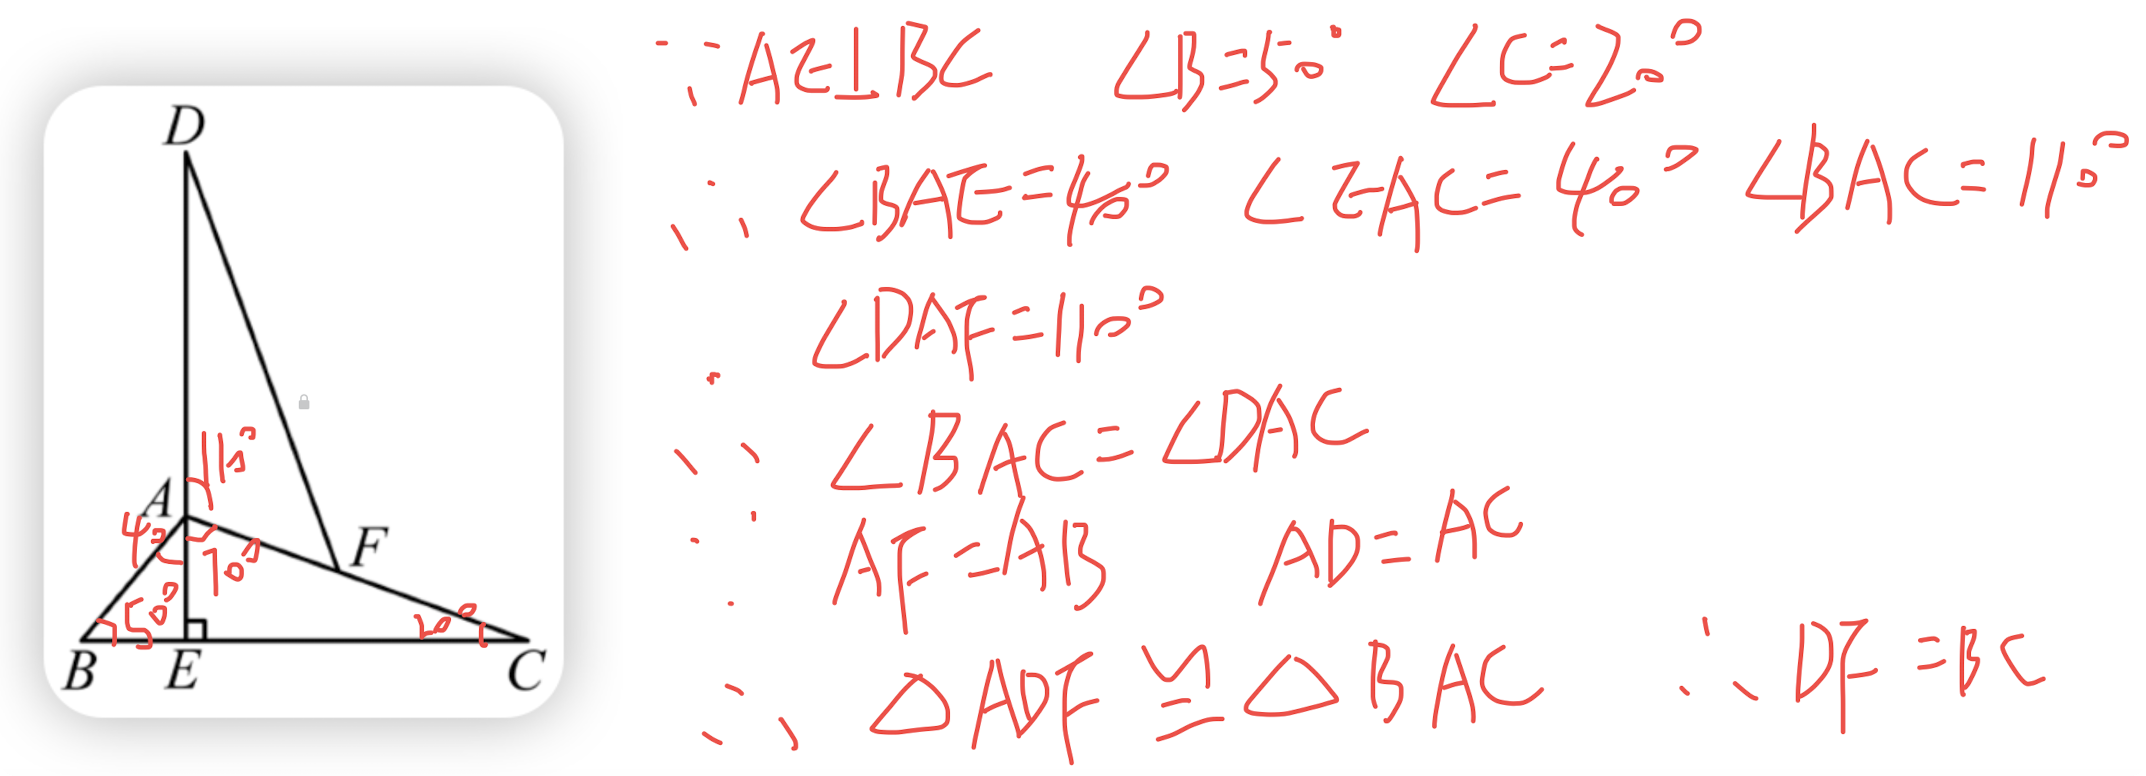 D
A
F
B
E
C
110°
40°
70°
50°
20°
∵ AE⊥BC ∠B=50° ∠C=20°
∴ ∠BAE=40° ∠EAC=40° ∠BAC=110°
∠DAF=110°
∴ ∠BAC=∠DAC
∵ AF=AB AD=AC
∴ △ADF≌△BAC ∴ DF=BC